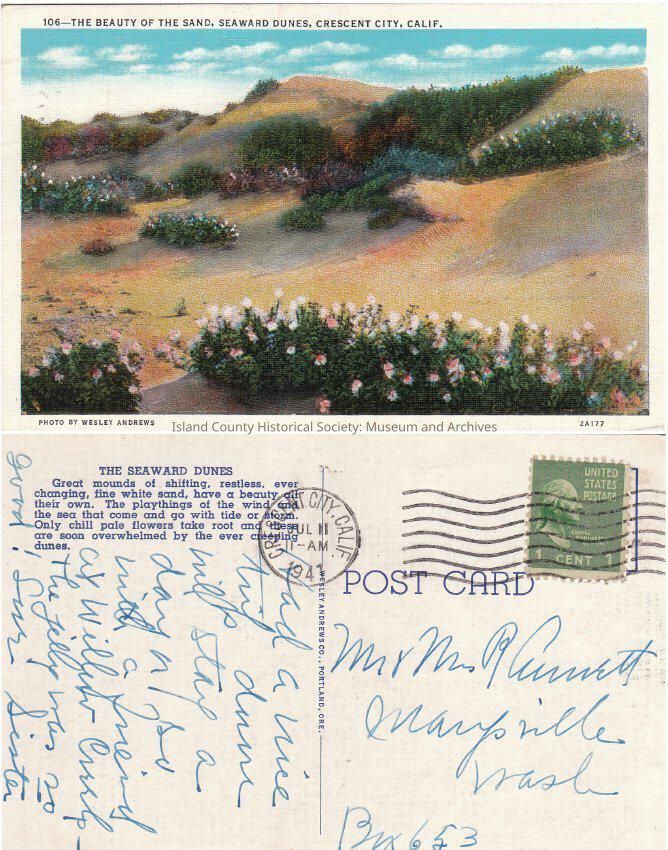 106—THE BEAUTY OF THE SAND, SEAWARD DUNES, CRESCENT CITY, CALIF.
PHOTO BY WESLEY ANDREWS
Island County Historical Society: Museum and Archives
2A177
THE SEAWARD DUNES
Great mounds of shifting, restless, ever
changing, fine white sand, have a beauty all
their own. The playthings of the wind and
the sea that come and go with tide or storm.
Only chill pale flowers take root and these
are soon overwhelmed by the ever creeping
dunes.
CRESCENT CITY, CALIF.
JUL 11
11-AM
1941
UNITED
STATES
POSTAGE
1 CENT 1
POST CARD
WESLEY ANDREWS CO., PORTLAND, ORE.
Had a nice
trip down
will stay a
day or so
with a friend
at Willow Creek
The jelly was so
good. Love Sister
Mr & Mrs R
Marysville
Wash
Box 653